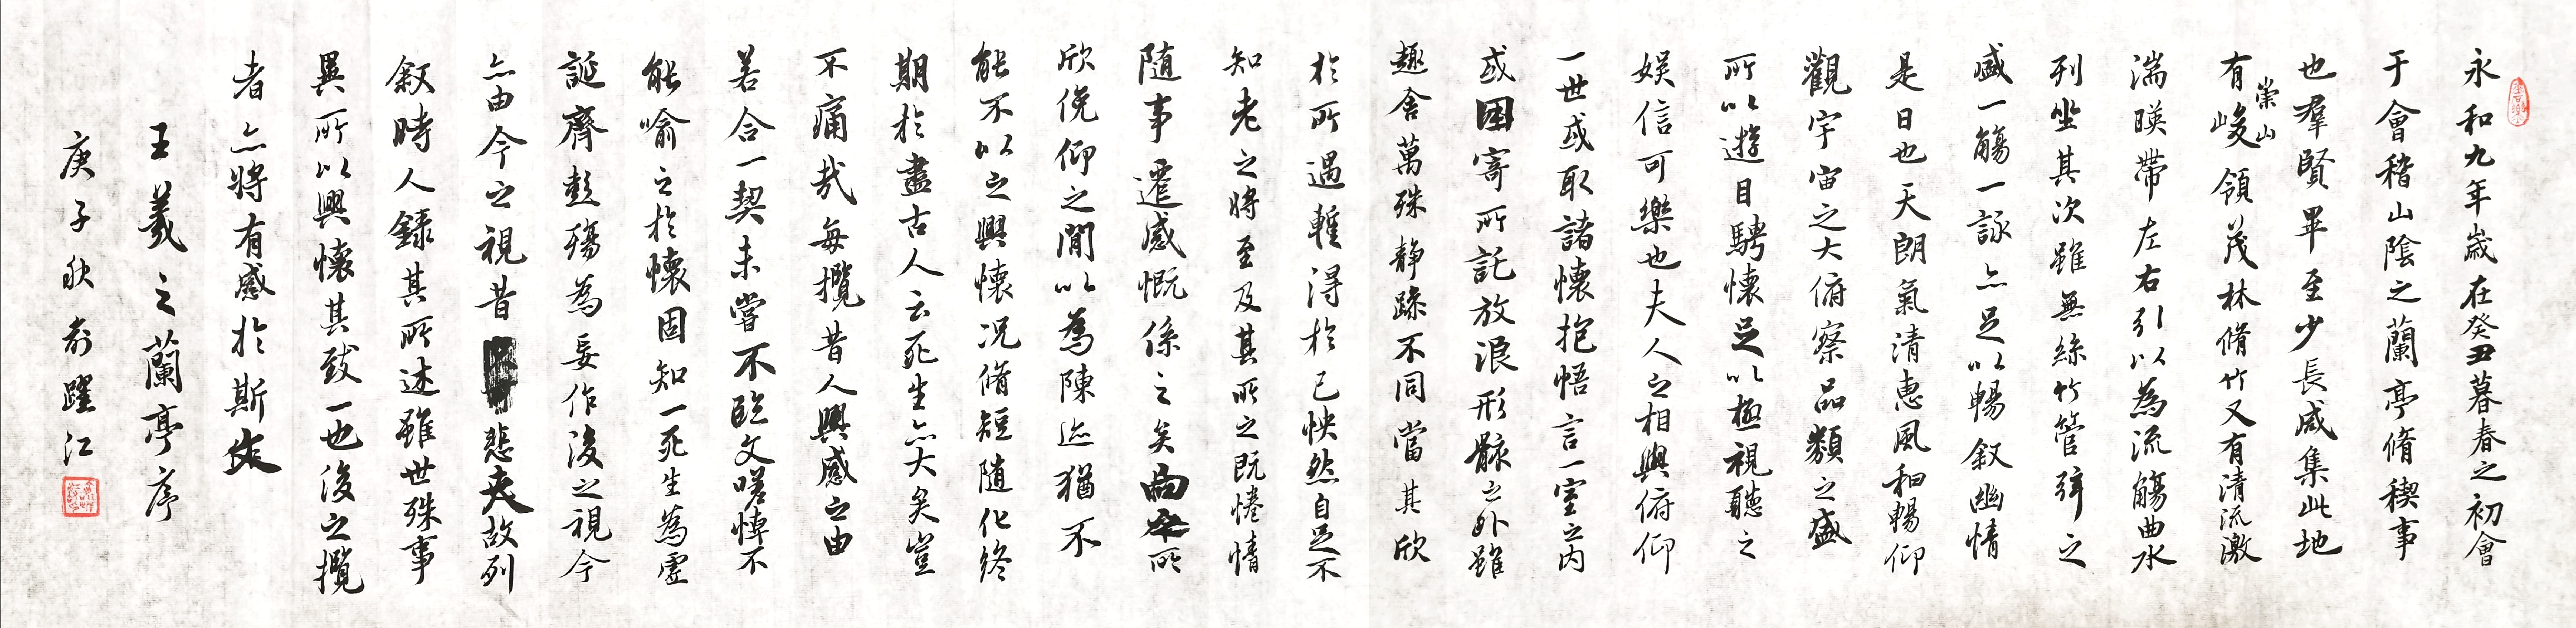 永和九年歲在癸丑暮春之初會
于會稽山陰之蘭亭脩稧事
也羣賢畢至少長咸集此地
有崇山峻領茂林脩竹又有清流激
湍暎帶左右引以為流觴曲水
列坐其次雖無絲竹管弦之
盛一觴一詠亦足以暢敘幽情
是日也天朗氣清惠風和暢仰
觀宇宙之大俯察品類之盛
所以遊目騁懷足以極視聽之
娛信可樂也夫人之相與俯仰
一世或取諸懷抱悟言一室之內
或因寄所託放浪形骸之外雖
趣舍萬殊靜躁不同當其欣
於所遇暫得於己怏然自足不
知老之將至及其所之既惓情
隨事遷感慨係之矣向之所
欣俛仰之閒以為陳迹猶不
能不以之興懷況脩短隨化終
期於盡古人云死生亦大矣豈
不痛哉每攬昔人興感之由
若合一契未嘗不臨文嗟悼不
能喻之於懷固知一死生為虛
誕齊彭殤為妄作後之視今
亦由今之視昔悲夫故列
敘時人錄其所述雖世殊事
異所以興懷其致一也後之攬
者亦將有感於斯文
王羲之蘭亭序
庚子秋俞躍江